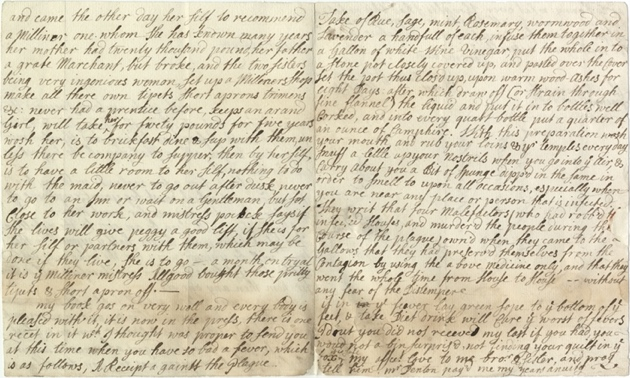 and came the other day her self to recommend
a Milliner one whom She has known many years
her mother had twenty thousand pounds, her father
a grate Marchant, but broke, and the two sisters
being very ingenious women, Set up a Milliners Shop
make all there own tipets Short aprons trimens
&c: never had a prentice before, keeps an arand
Girl, will take her for twety pounds for five years
wash her, is to brukfast dine & sup with them, un
less there be company to supper, then by her self,
is to have a little room to her self, nothing to do
with the maid, never to go out after dusk, never
to go to an Inn or wait on a Gentleman, but sot
close to her work, and mistress says if
she lives will give peggy a good lift, if she is for
her self or partners with them, which may be
done if they live, she is to go - a month on tryal
it is ye Miliner mistress Allgood bought those pritty
 & short apron off
my book gos on very well and every body is
pleased with it, it is now in the press, there is one
receit in it wch I thought was proper to send you
at this time when you have so bad a fever, which
is as follows, A Receipt against the Plague.
Take of Rue, Sage, mint, Rosemary, wormwood and
Lavender a handfull of each, infuse them together in
a Gallon of white Wine Vinegar put the whole in to
a stone pot closely covered up, and pasted over the cover
set the pot thus clos'd up, upon warm wood ashes for
eight days after which draw off (or strain through
fine flannel) the liquid and put it in to bottles well
corked, and into every quart bottle put a quarter of
an ounce of Camphire. With this preparation wash
your mouth, and rub your loins & yr temples every day
snuff a little up your nostrils when you go into ye Air &
carry about you a bit of spunge dipp'd in the same in
order to smell to upon all occasions, especially when
you are near any place or person that is infected.
They writ that four Malefactors (who had robb'd ye
infected Houses, and murder'd the people during the
course of the plague) own'd, when they came to the
Gallows that they had preserved themselves from the
Contagion by using the above medicine only, and that they
went the whole time from House to House -- without
any fear of the distemper
if in ye fever lay green sope to ye bottom of ye
feet & take Diet drink will cure ye worst of fevers
I dout you did not received my last if you had you
would not a bin surpris'd not finding your quilt in ye
box, my 
tell him mr my year annuity